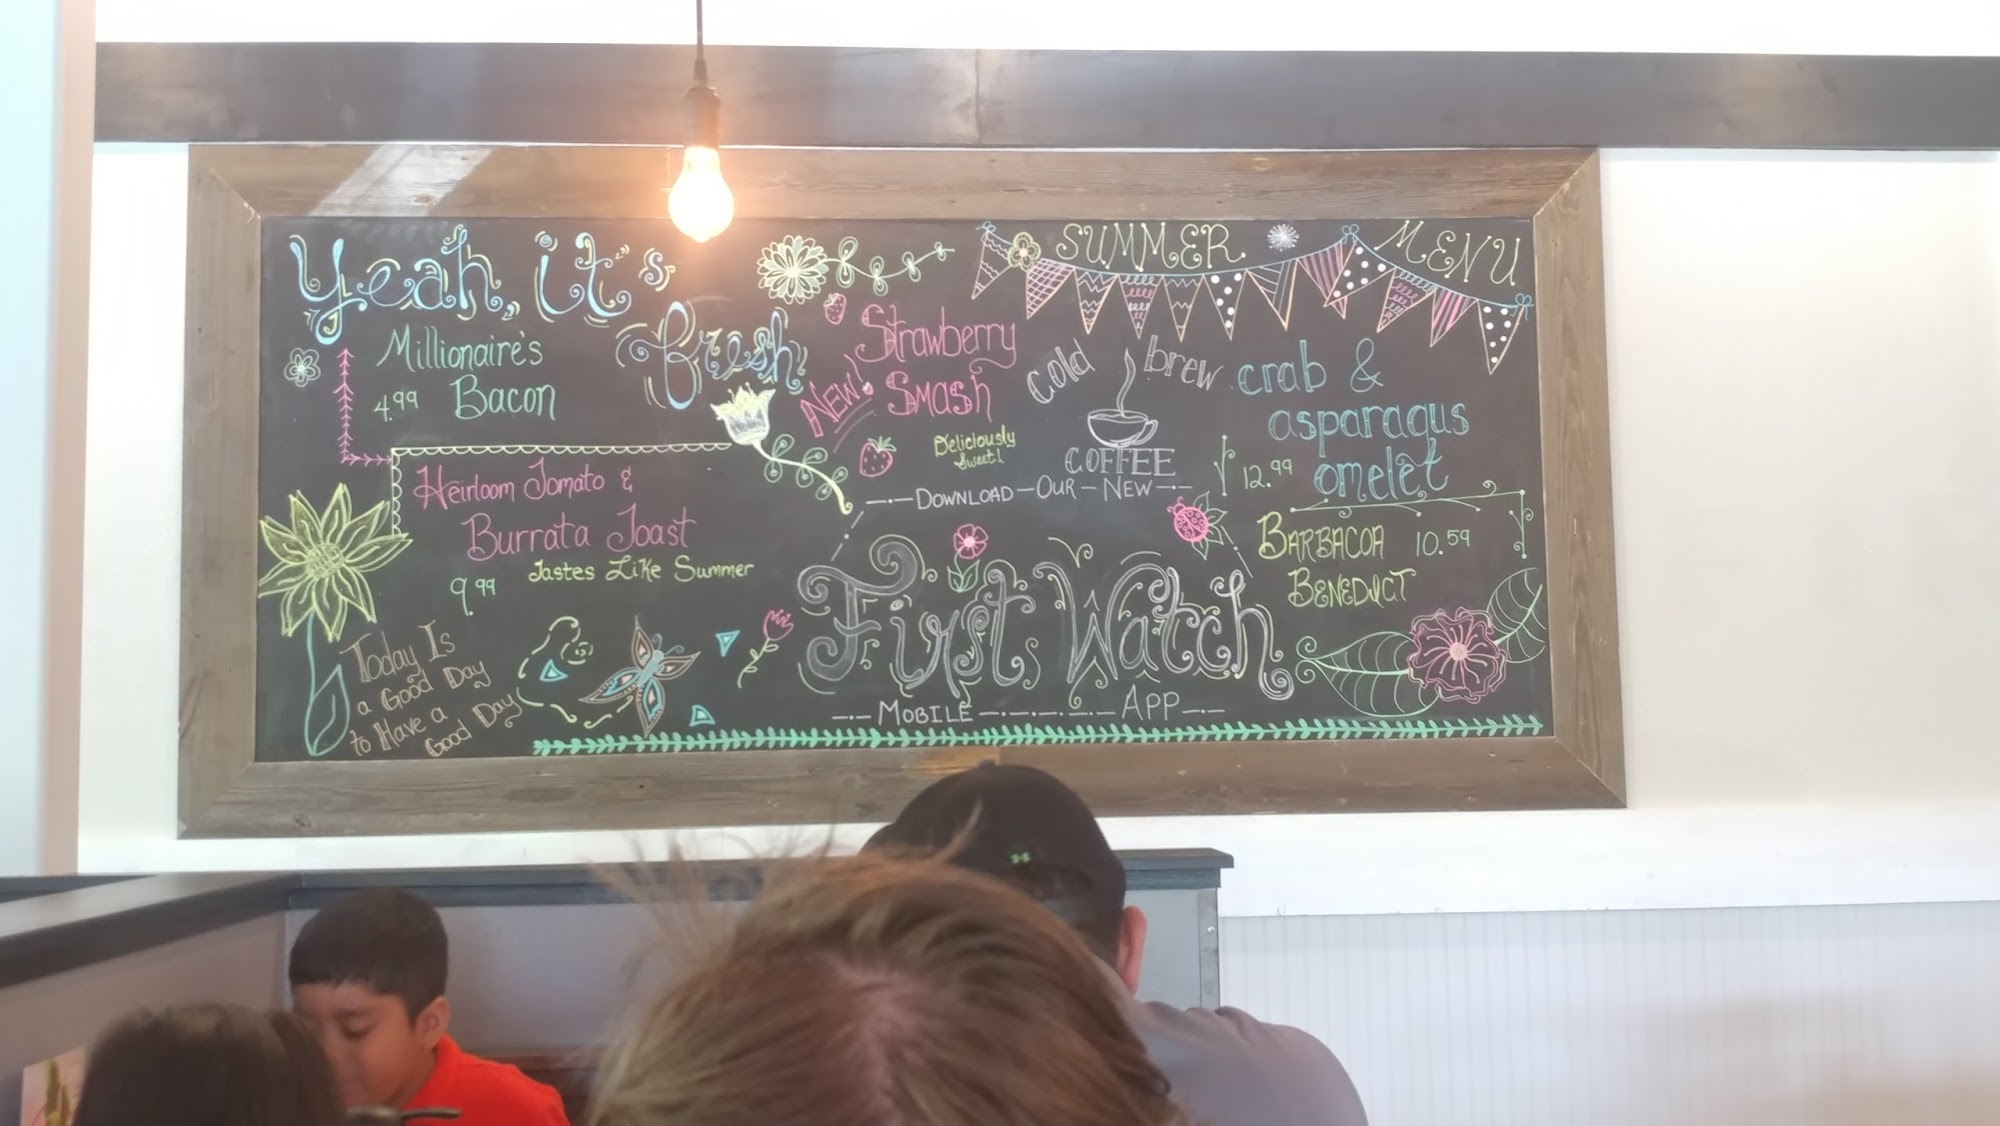 Yeah, it's
fresh
Millionaire's
4.99 Bacon
Heirloom Tomato &
Burrata Toast
9.99 Tastes Like Summer
Today Is
a Good Day
to Have a
Good Day
Strawberry
NEW! Smash
Deliciously
Sweet!
SUMMER MENU
Cold brew
COFFEE
crab &
asparagus
12.99 omelet
BARBACOA 10.59
BENEDICT
DOWNLOAD OUR NEW
First Watch
MOBILE APP